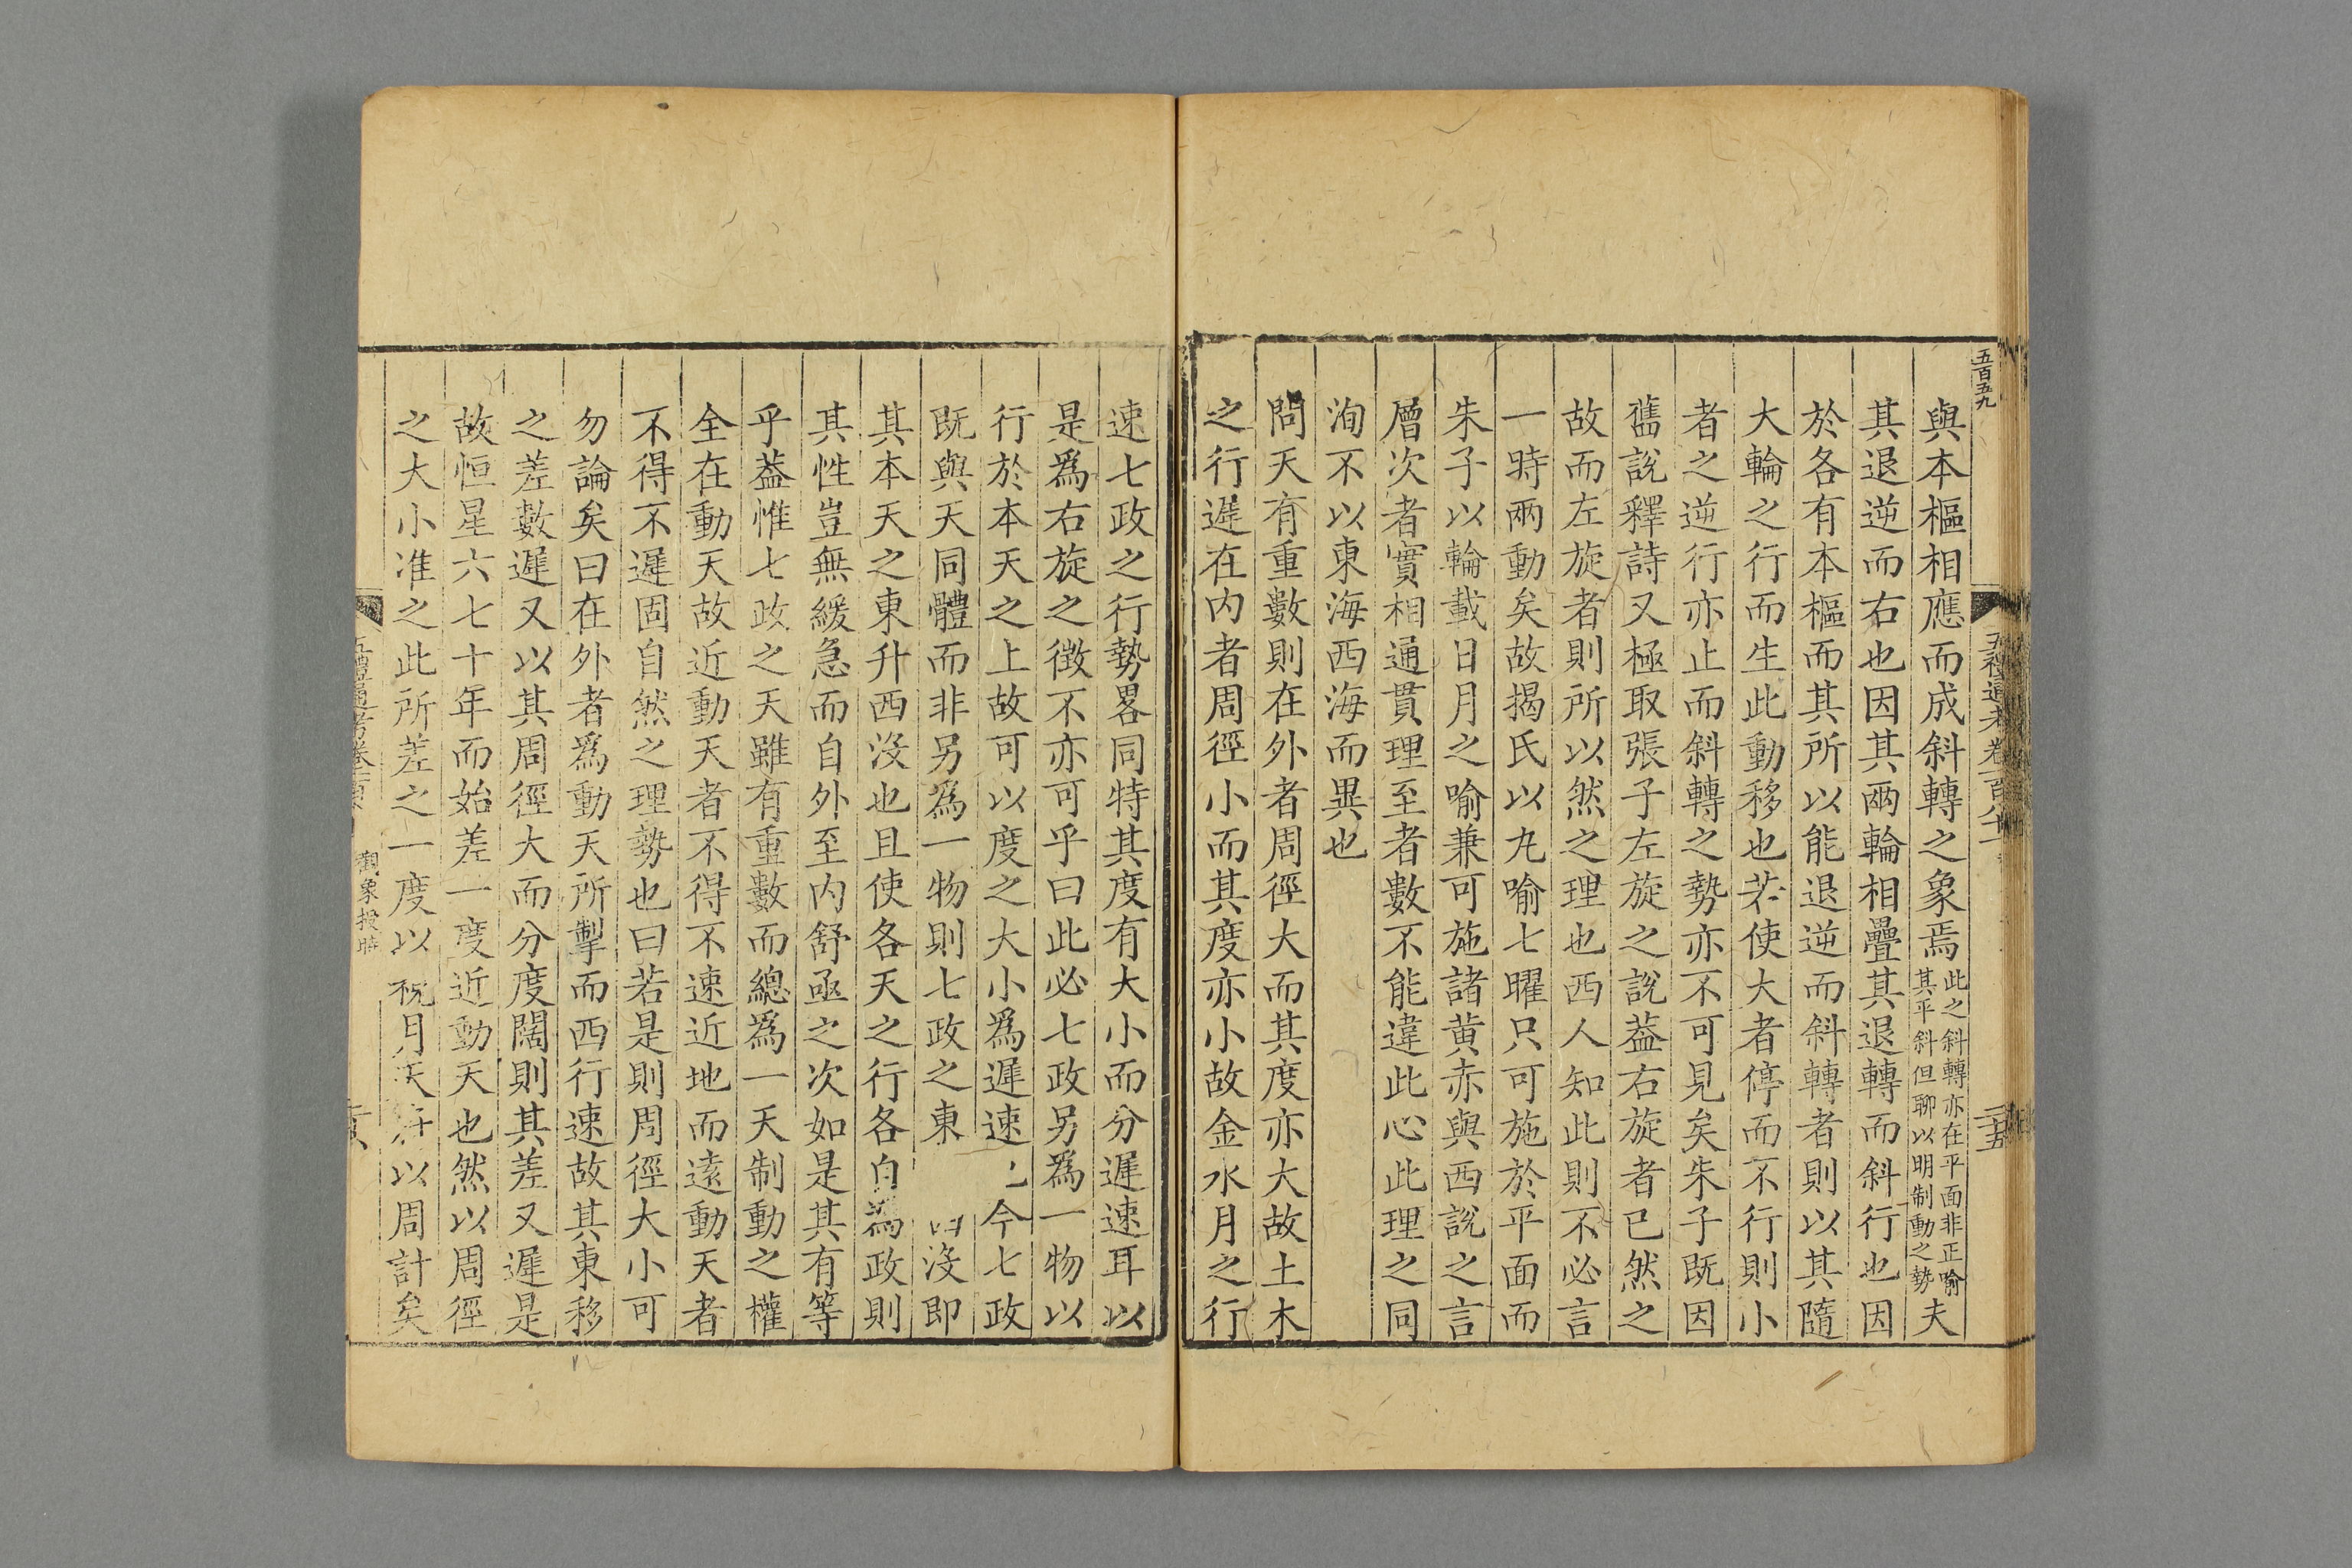 五百五九
與本樞相應而成斜轉之象焉此之斜轉亦在平面非正喻其平斜但聊以明制動之勢夫
其退逆而右也因其兩輪相疊其退轉而斜行也因
於各有本樞而其所以能退逆而斜轉者則以其隨
大輪之行而生此動移也若使大者停而不行則小
者之逆行亦止而斜轉之勢亦不可見矣朱子既因
舊說釋詩又極取張子左旋之說葢右旋者已然之
故而左旋者則所以然之理也西人知此則不必言
一時兩動矣故揭氏以丸喻七曜只可施於平面而
朱子以輪載日月之喻兼可施諸黄赤與西說之言
層次者實相通貫理至者數不能違此心此理之同
洵不以東海西海而異也
問天有重數則在外者周徑大而其度亦大故土木
之行遲在内者周徑小而其度亦小故金水月之行
速七政之行勢畧同特其度有大小而分遲速耳以
是爲右旋之徴不亦可乎曰此必七政另爲一物以
行於本天之上故可以度之大小爲遲速今七政
既與天同體而非另爲一物則七政之東没即
其本天之東升西没也且使各天之行各自為政則
其性豈無緩急而自外至内舒亟之次如是其有等
乎葢惟七政之天雖有重數而總爲一天制動之權
全在動天故近動天者不得不速近地而遠動天者
不得不遲固自然之理勢也曰若是則周徑大小可
勿論矣曰在外者爲動天所掣而西行速故其東移
之差數遲又以其周徑大而分度闊則其差又遲是
故恒星六七十年而始差一度近動天也然以周徑
之大小准之此所差之一度以視月天以周計矣
觀象授時